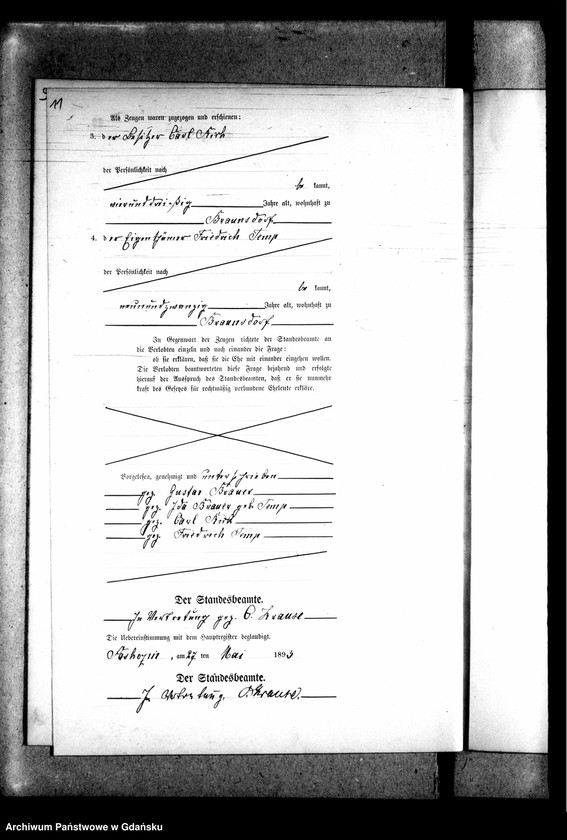 11
Als Zeugen waren zugezogen und erschienen:
3. der Besitzer Carl Kirk
der Persönlichkeit nach
be kannt,
vierunddreißig Jahre alt, wohnhaft zu
Braunsdorf
4. der Eigenthümer Friedrich Temp
der Persönlichkeit nach
be kannt,
neunundzwanzig Jahre alt, wohnhaft zu
Braunsdorf
In Gegenwart der Zeugen richtete der Standesbeamte an
die Verlobten einzeln und nach einander die Frage:
ob sie erklären, daß sie die Ehe mit einander eingehen wollen.
Die Verlobten beantworteten diese Frage bejahend und erfolgte
hierauf der Ausspruch des Standesbeamten, daß er sie nunmehr
kraft des Gesetzes für rechtmäßig verbundene Eheleute erkläre.
Vorgelesen, genehmigt und unterschrieben
gez. Gustav Brauer
gez. Ida Brauer geb. Temp
gez. Carl Kirk
gez. Friedrich Temp
Der Standesbeamte.
In Vertretung gez. C. Krause
Die Uebereinstimmung mit dem Hauptregister beglaubigt.
, am 27 ten Mai 1893
Der Standesbeamte.
In Vertretung. Krause.
Archiwum Państwowe w Gdańsku